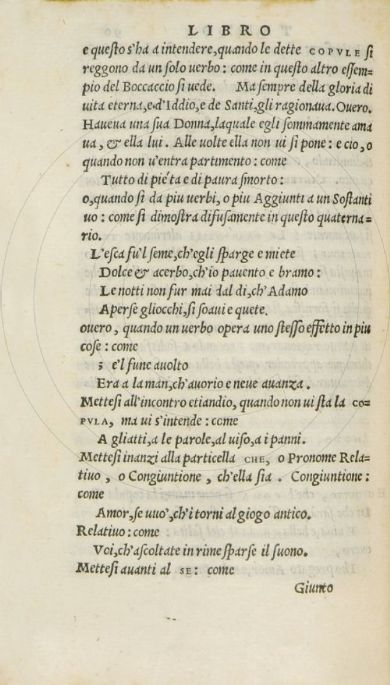 LIBRO
e questo s'ha a intendere, quando le dette COPVLE si
reggono da un solo uerbo: come in questo altro essem-
pio del Boccaccio si uede. Ma sempre della gloria di
uita eterna, e d'Iddio, e de Santi, gli ragionaua. Ouero.
Haueua una sua Donna, laquale egli sommamente ama
ua, & ella lui. Alle uolte ella non ui si pone: e cio, o
quando non u'entra partimento: come
Tutto di pie'ta e di paura smorto:
o, quando si da piu uerbi, o piu Aggiunti a un Sostanti
uo: come si dimostra difusamente in questo quaterna-
rio.
L'esca fu'l seme, ch'egli sparge e miete
Dolce & acerbo, ch'io pauento e bramo:
Le notti non fur mai dal di, ch'Adamo
Aperse gliocchi, si soaui e quete.
ouero, quando un uerbo opera uno stesso effetto in piu
cose: come
s e'l fune auolto
Era a la man, ch'auorio e neue auanza.
Mettesi all'incontro etiandio, quando non ui sta la CO-
PVLA, ma ui s'intende: come
A gliatti, a le parole, al uiso, a i panni.
Mettesi inanzi alla particella CHE, o Pronome Rela-
tiuo, o Congiuntione, ch'ella sia. Congiuntione:
come
Amor, se uuo', ch'i torni al giogo antico.
Relatiuo: come
Voi, ch'ascoltate in rime sparse il suono.
Mettesi auanti al SE: come
Giunto